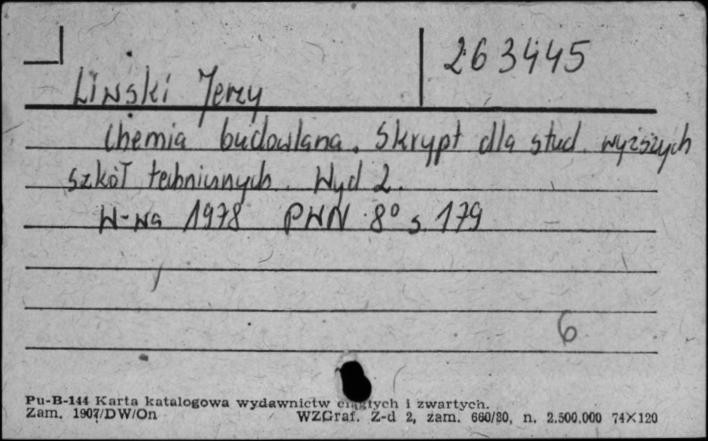 263445
Linski Jerzy
Chemia budowlana. Skrypt dla stud. wyższych
szkół technicznych. Wyd 2.
W-wa 1978 PWN 8° s. 179
6
Pu-B-144 Karta katalogowa wydawnictw ciągłych i zwartych.
Zam. 1907/DW/On WZGraf. Z-d 2, zam. 660/80, n. 2.500.000 74×120